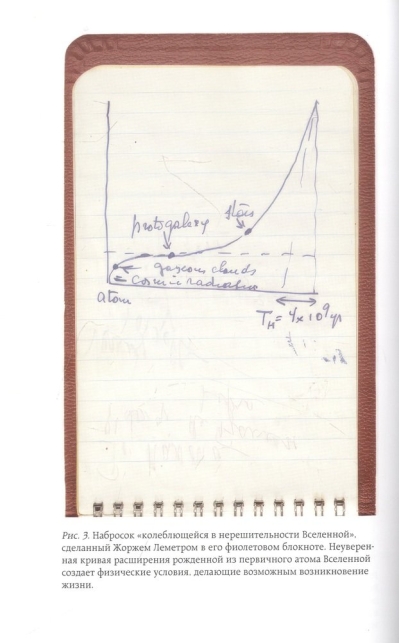 stars
protogalaxy
gaseous clouds
cosmic radiation
atom
T_H = 4x10⁹ yr
Рис. 3. Набросок «колеблющейся в нерешительности Вселенной»,
сделанный Жоржем Леметром в его фиолетовом блокноте. Неуверен-
ная кривая расширения рожденной из первичного атома Вселенной
создает физические условия, делающие возможным возникновение
жизни.